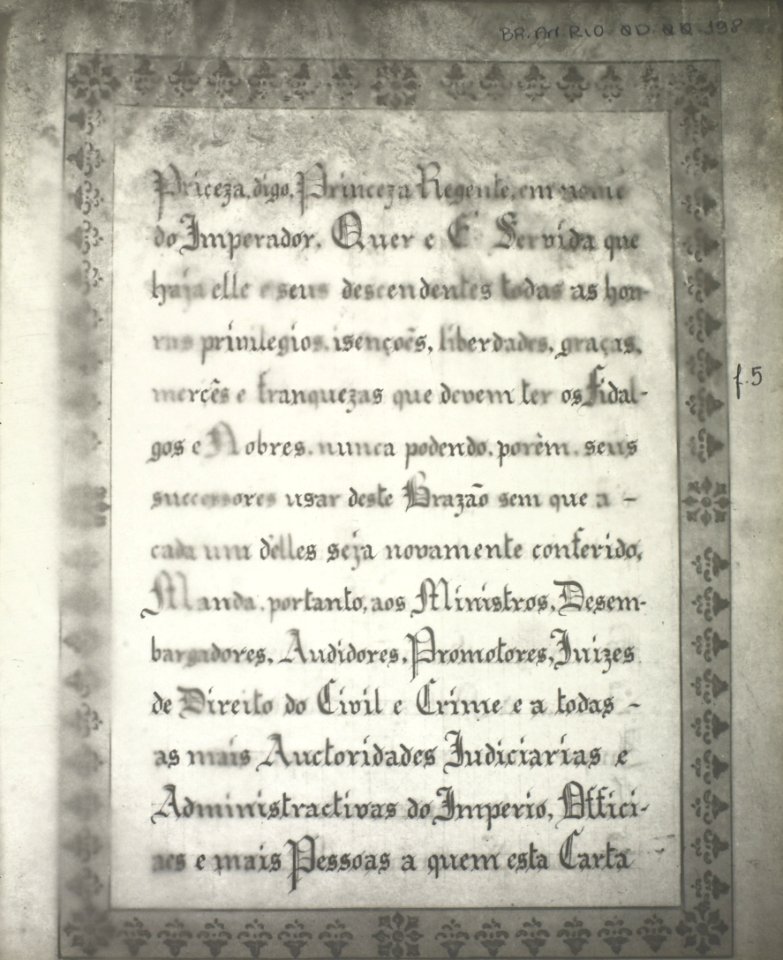 BR.AN.RIO.QD.QQ.198
Priceza, digo, Princeza Regente, em nome
do Imperador, Quer e É Servida que
haja elle e seus descendentes todas as hon-
ras privilegios, isençoẽs, liberdades, graças,
mercês e franquezas que devem ter os Fidal-
gos e Nobres, nunca podendo, porêm, seus
successores usar deste Brazão sem que a -
cada um d'elles seja novamente conferido,
Manda, portanto, aos Ministros, Desem-
bargadores, Audidores, Promotores, Juizes
de Direito do Civil e Crime e a todas -
as mais Auctoridades Judiciarias e
Administractivas do Imperio, Offici-
aes e mais Pessoas a quem esta Carta
f.5